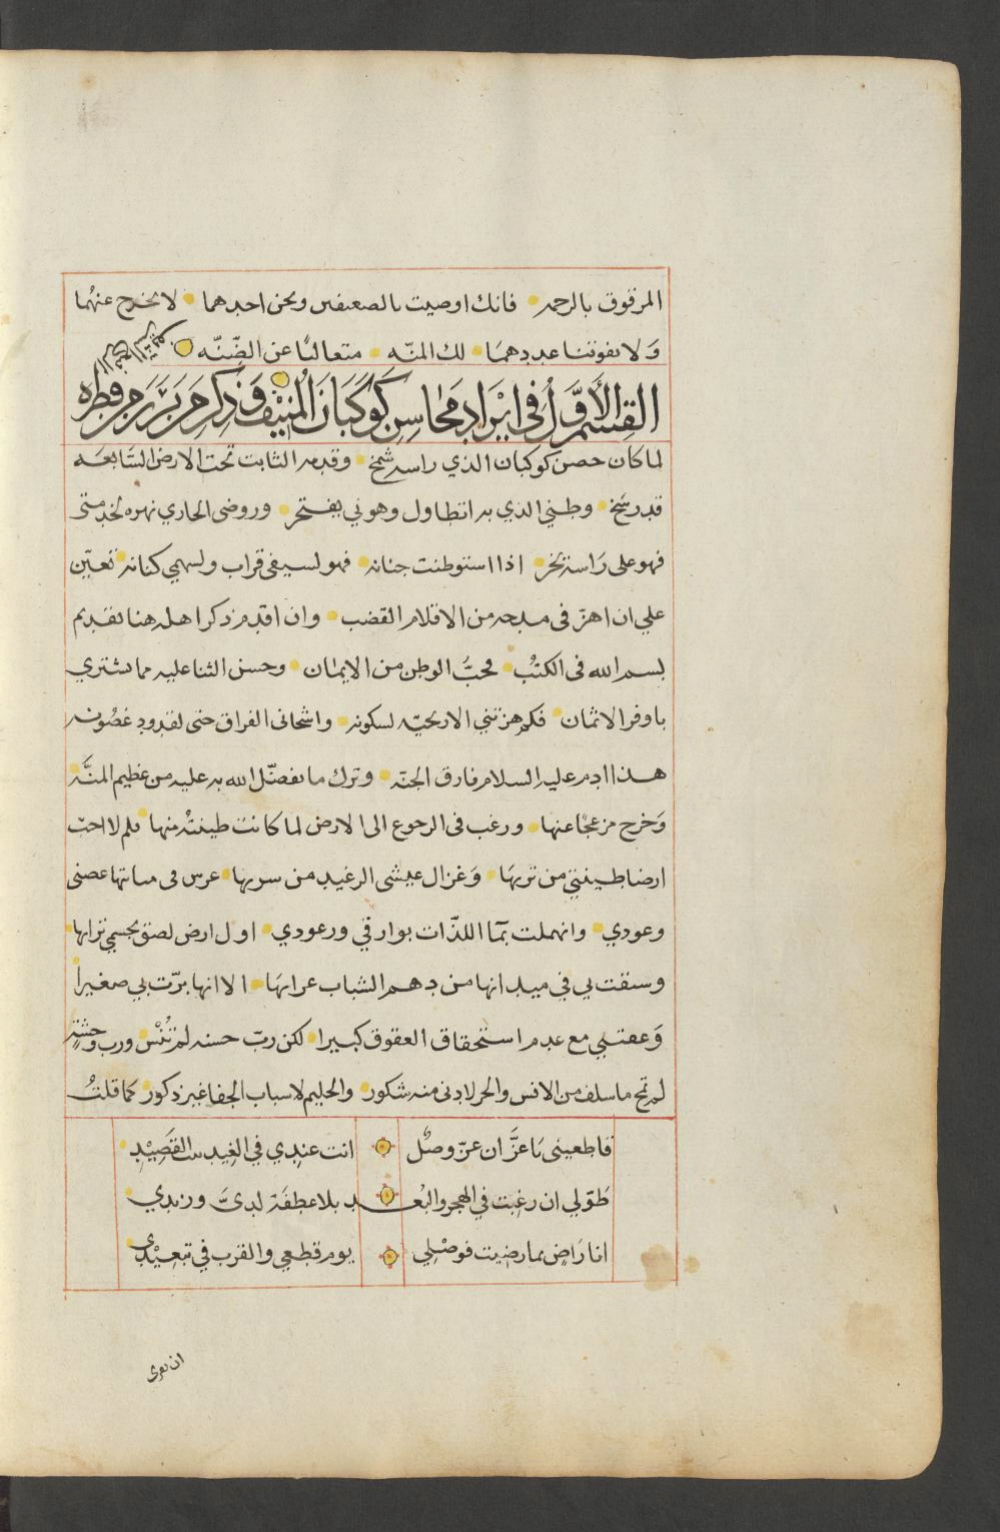 المرقوق بالرحمه فانك اوصيت بالضعيفين ونحن احدهما لا يخرج عنهما
ولا يفوتنا عددهما لك المنه متعاليًا عن الضّنّه
القسم الأول في ايراد محاسن كوكبان المنيف وذكر من برز من قطره
لما كان حصن كوكبان الذي راسه شمخ وقدمه الثابت تحت الارض السّابعه
قد رسخ وطني الذي به اتطاول وهو بي يفتخر وروضى الجاري نهره لخدمتى
فهو على راسه يخر اذا استوطنت جنانه فهو لسيفى قراب ولسهمي كنانه تعيّن
علي ان اهزّ في مدحه من الاقلام القضب وان اقدم ذكر اهله هنا تقديم
بسم الله فى الكتب فحبُّ الوطن من الايمان وحسن الثنا عليه مما يشتري
باوفر الاثمان فكم هزتني الاريحيّه لسكونه واشجانى الفراق حتى لقدود غصونه
هذا ادم عليه السلام فارق الجنّه وترك ما تفضّل الله به عليه من عظيم المنَّه
وخرج مزعجًا عنها ورغب فى الرجوع الى الارض لما كانت طينتُه منها فلم لا احبّ
ارضا طينتي من تربها وغزال عيشى الرغيد من سربها غرس فى منابتها غصنى
وعودي وانهملت بمآ اللذّات بوارقي ورعودي اول ارض لصق بجسمي ترابها
وسبقت بي في ميدانها من دهم الشباب عرابها الا انها برّت بي صغيرا
وعقتني مع عدم استحقاق العقوق كبيرا لكن ربّ حسنه لم تُنْسَ ورب وحشةٍ
لم تمح ما سلف من الانس والحر لادنى منه شكور والحليم لاسباب الجفا غير ذكور كما قلتُ
قاطعينى يا عزَّ ان عزّ وصلٌ انت عندي في الغيد بيت القصيْدِ
طوّلي ان رغبت في الهجر والبعد بلا عطفة لديَّ وزيدي
انا راضٍ بما رضيت فوصْلِي يوم قطعي والقرب في تبعيْدِى